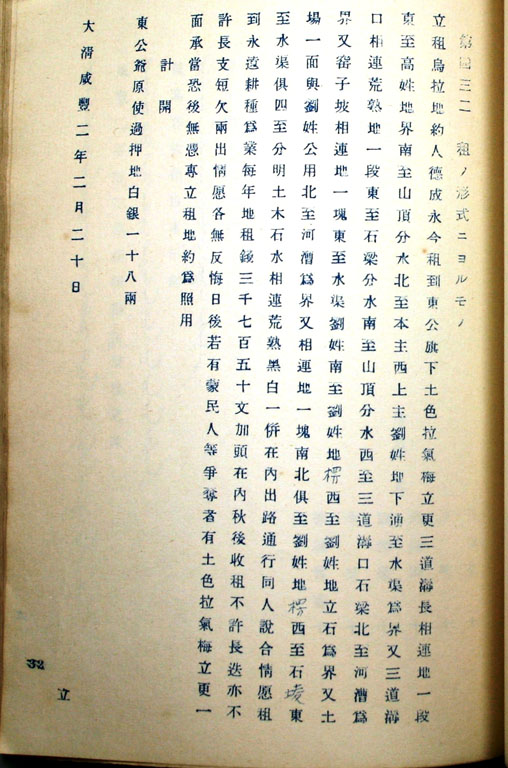 第四三二　租ノ形式ニヨルモノ
立租烏拉地約人德成永今租到東公旗下土色拉氣梅立更三道海長相連地一段
東至高姓地界南至山頂分水北至本主西上主劉姓地下浦至水渠爲界又三道海
口相連荒熟地一段東至石梁分水南至山頂分水西至三道海口石梁北至河漕爲
界又窑子坡相連地一塊東至水渠劉姓南至劉姓地楞西至劉姓地立石爲界又土
場一面與劉姓公用北至河漕爲界又相連地一塊南北俱至劉姓地楞西至石堎東
至水渠俱四至分明土木石水相連荒熟黑白一併在內出路通行同人說合情愿租
到永遠耕種爲業每年地租錢三千七百五十文加頭在內秋後收租不許長迭亦不
許長支短欠兩出情愿各無反悔日後若有蒙民人等爭奪者有土色拉氣梅立更一
面承當恐後無憑專立租地約爲照用
計開
東公爺原使過押地白銀一十八兩
大清咸豐二年二月二十日
立
32